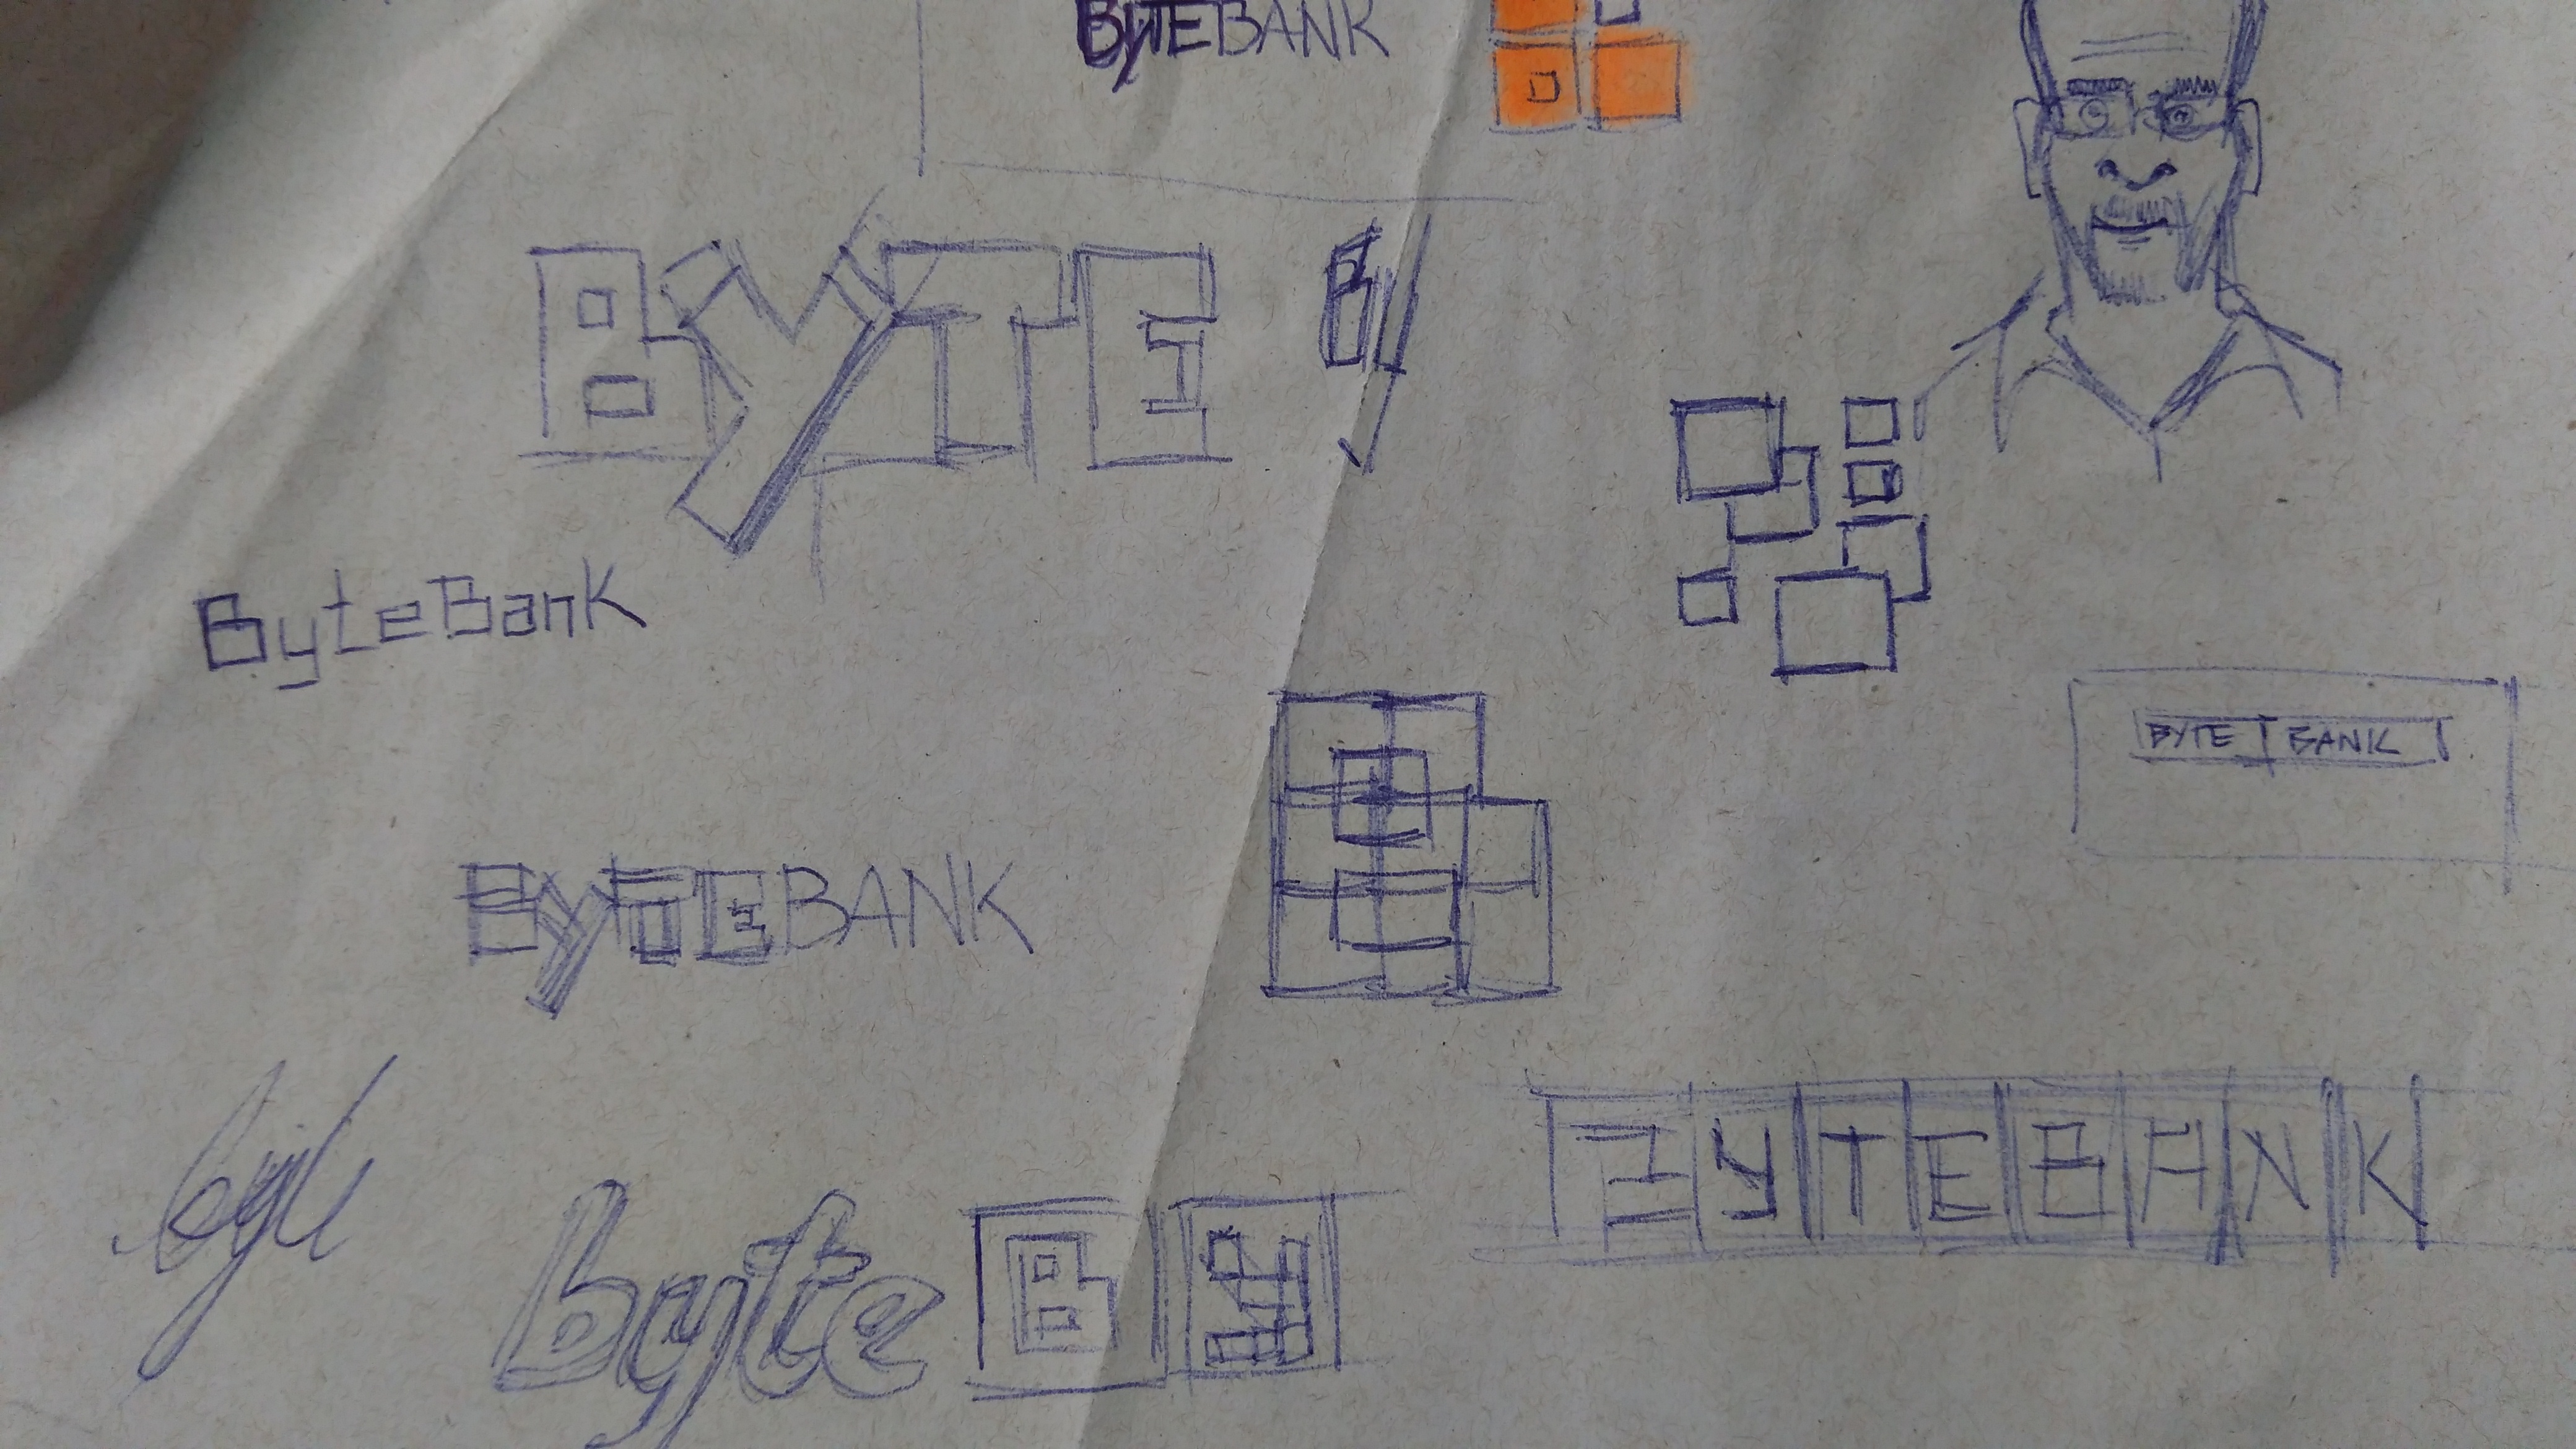 BYTEBANK
BYTE
By
ByteBank
BYTE BANK
BYTEBANK
BYTEBANK
byte
byte B y